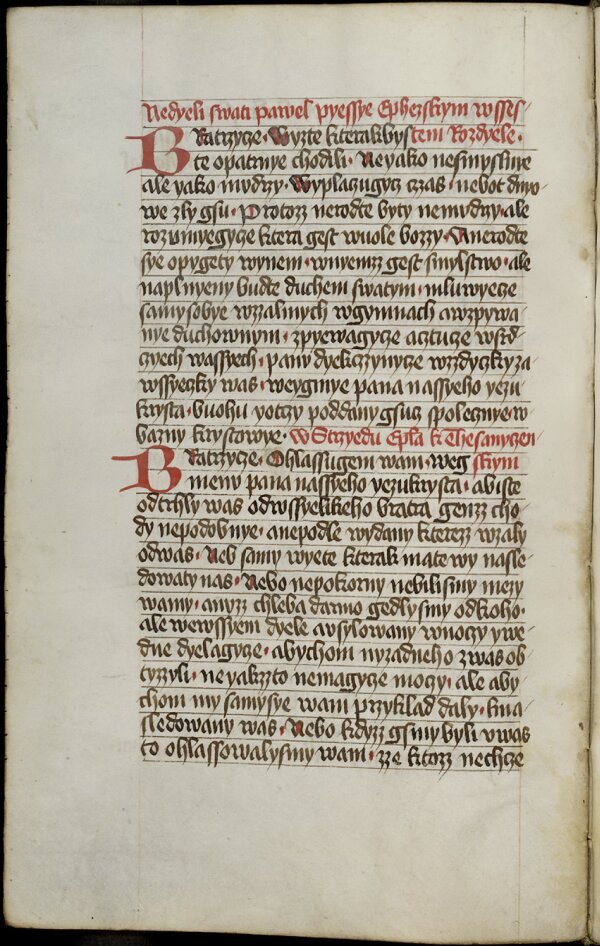 Nedyeli swati pawel pyessye Ephezskym w sses
Bratrzycze · Wyzte kterakbys tem Rozdyele ·
te opatrnye chodili · Neyako nesmyslnye
ale yako mudrzy · Wyplaczugycz czas · nebot dnyo
we zly gsu · Protozz nerodte byty nemudrzy · ale
rozumyegycze ktera gest wuole bozzy · A nerodte
sye opygety wynem · wnyemzz gest smylstwo · ale
naplnyeny budte duchem swatym · mluwyecze
samy sobye wzzalmych w gymnach a w zpywa
nye duchownym · zpyewagycze acztucze w srd
czych wassyech · pany dyekczzynycze wzzdyczky za
wssyeczky was · weygmye pana nassyeho yezu
krysta · buohu yotczy poddany gsucz spolecznye w
bazny krystowye · W Strzyedu Epla k Thesamyczen
Bratrzycze · Ohlassugem wam · weg skym
meno pana nassyeho yezukrysta · abiste
odtrhly was odwssyelikeho bratra genzz cho
dy nepodobnye · anepodle wydany kterezz wzaly
odwas · Neb samy wyete kterak mate wy nasle
dowaty nas · Nebo nepokorny nebili smy mezy
wamy · anyzz chleba darmo gedly smy odkoho ·
ale wewssyem dyele a vsylowany w noczy y we
dne dyelagycze · abychom nyzadneho z was ob
tyzzyli · ne yakzzto nemagycze moczy · ale aby
chom my samy sye wam przyklad daly · kna
sledowany was · Nebo kdyzz gsmy byli v was
to ohlassowaly smy wam · zze ktozz nechcze